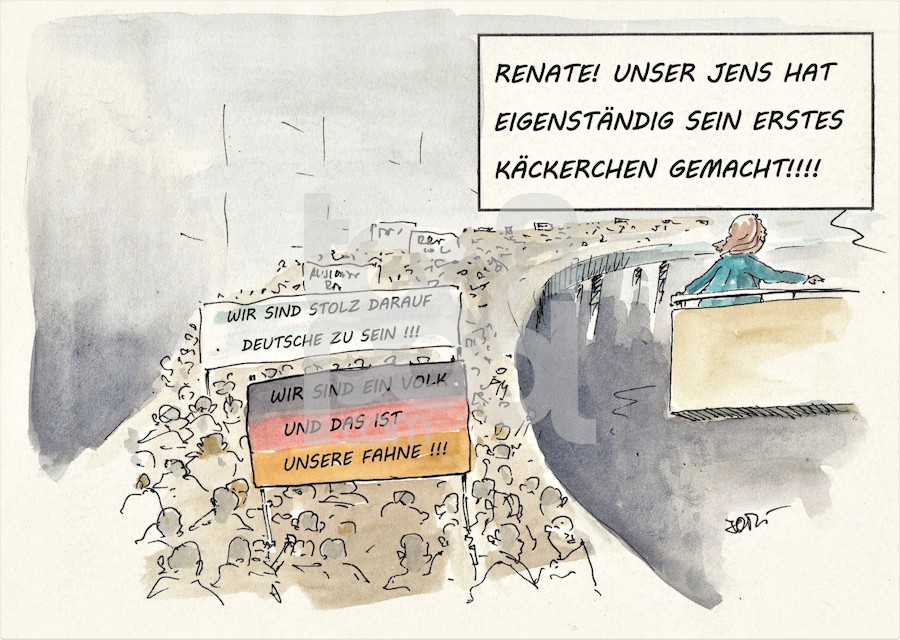 RENATE! UNSER JENS HAT
EIGENSTÄNDIG SEIN ERSTES
KÄCKERCHEN GEMACHT!!!!
WIR SIND STOLZ DARAUF
DEUTSCHE ZU SEIN !!!
WIR SIND EIN VOLK
UND DAS IST
UNSERE FAHNE !!!